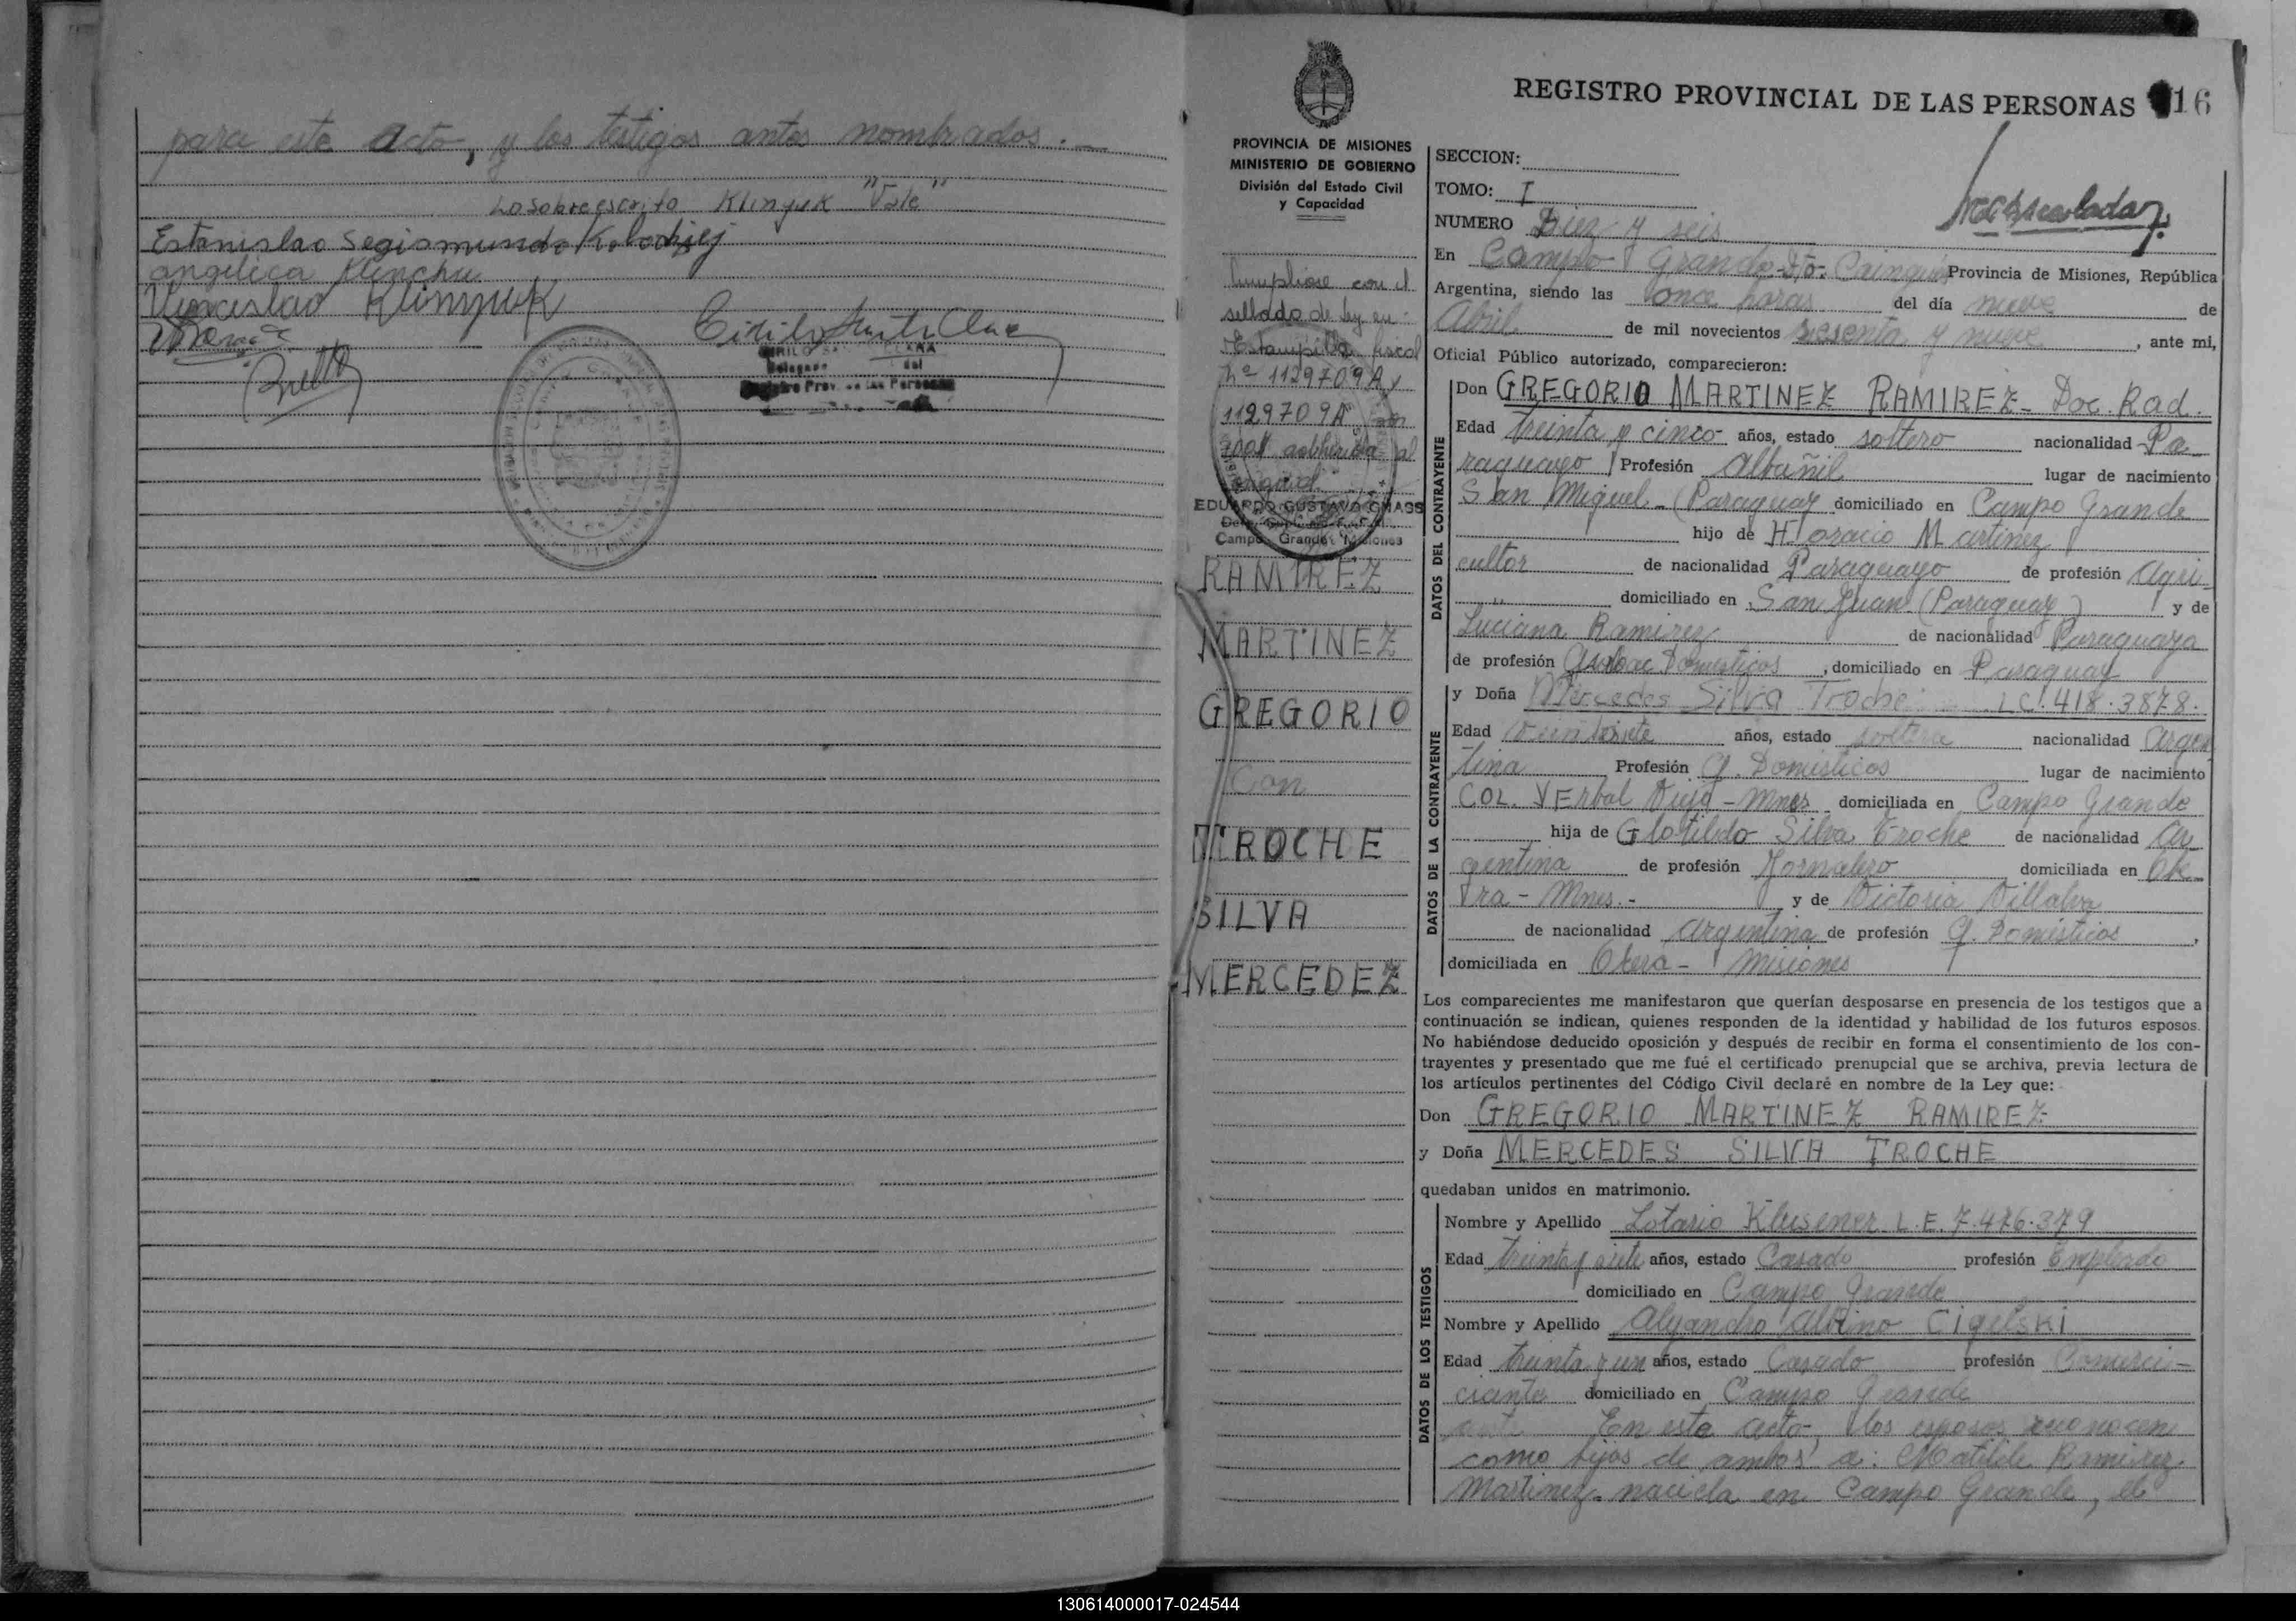 para este acto, y los testigos antes nombrados.
Lo sobreescrito Klinyuk "Vale"
Estanislao Segismundo Kolodziej
angelica Klinchu
Wenceslao Klinyuk
Cirilo Santa Clara
Delegado del
Registro Prov. de las Personas
REGISTRO PROVINCIAL DE LAS PERSONAS 16
PROVINCIA DE MISIONES
MINISTERIO DE GOBIERNO
División del Estado Civil
y Capacidad
Cumpliose con el
sellado de ley en
Estampilla fiscal
Nº 1129709A y
1129709A
adherida al
original
EDUARDO GUSTAVO
Campo Grande Misiones
RAMIREZ
MARTINEZ
GREGORIO
Con
TROCHE
SILVA
MERCEDEZ
SECCION:
TOMO: I
NUMERO Diez y seis
En Campo Grande Dto. Cainguás Provincia de Misiones, República
Argentina, siendo las once horas del día nueve de
Abril de mil novecientos sesenta y nueve, ante mi,
Oficial Público autorizado, comparecieron:
DATOS DEL CONTRAYENTE
Don GREGORIO MARTINEZ RAMIREZ - Doc. Rad.
Edad treinta y cinco años, estado soltero nacionalidad Pa
raguayo Profesión Albañil lugar de nacimiento
San Miguel - (Paraguay domiciliado en Campo Grande
hijo de Horacio Martinez
cultor de nacionalidad Paraguayo de profesión Agri-
" domiciliado en San Juan (Paraguay) y de
Luciana Ramirez de nacionalidad Paraguaya
de profesión Domesticos, domiciliado en Paraguay
DATOS DE LA CONTRAYENTE
y Doña Mercedes Silva Troche L.C. 418.3878.
Edad veintisiete años, estado soltera nacionalidad Argen
tina Profesión Q. Domésticos lugar de nacimiento
COL. YErbal Viejo - Mnes domiciliada en Campo Grande
hija de Glotildo Silva Troche de nacionalidad Ar
gentina de profesión Jornalero domiciliada en Ok
Mnes. - y de Victoria Villalva
de nacionalidad Argentina de profesión Q. Domésticos,
domiciliada en Obera - Misiones
Los comparecientes me manifestaron que querían desposarse en presencia de los testigos que a
continuación se indican, quienes responden de la identidad y habilidad de los futuros esposos.
No habiéndose deducido oposición y después de recibir en forma el consentimiento de los con-
trayentes y presentado que me fué el certificado prenupcial que se archiva, previa lectura de
los artículos pertinentes del Código Civil declaré en nombre de la Ley que:
Don GREGORIO MARTINEZ RAMIREZ
y Doña MERCEDES SILVA TROCHE
quedaban unidos en matrimonio.
DATOS DE LOS TESTIGOS
Nombre y Apellido Lotario Klusener L.E. 7.476.379
Edad treinta y siete años, estado Casado profesión Empleado
domiciliado en Campo Grande
Nombre y Apellido Alejandro Albino Cigelski
Edad treinta y un años, estado Casado profesión Comerci-
ciante domiciliado en Campo Grande
En este acto, los esposos reconocen
como hijos de ambos a: Matilde Ramirez
Martinez - nacida en Campo Grande, el
130614000017-024544